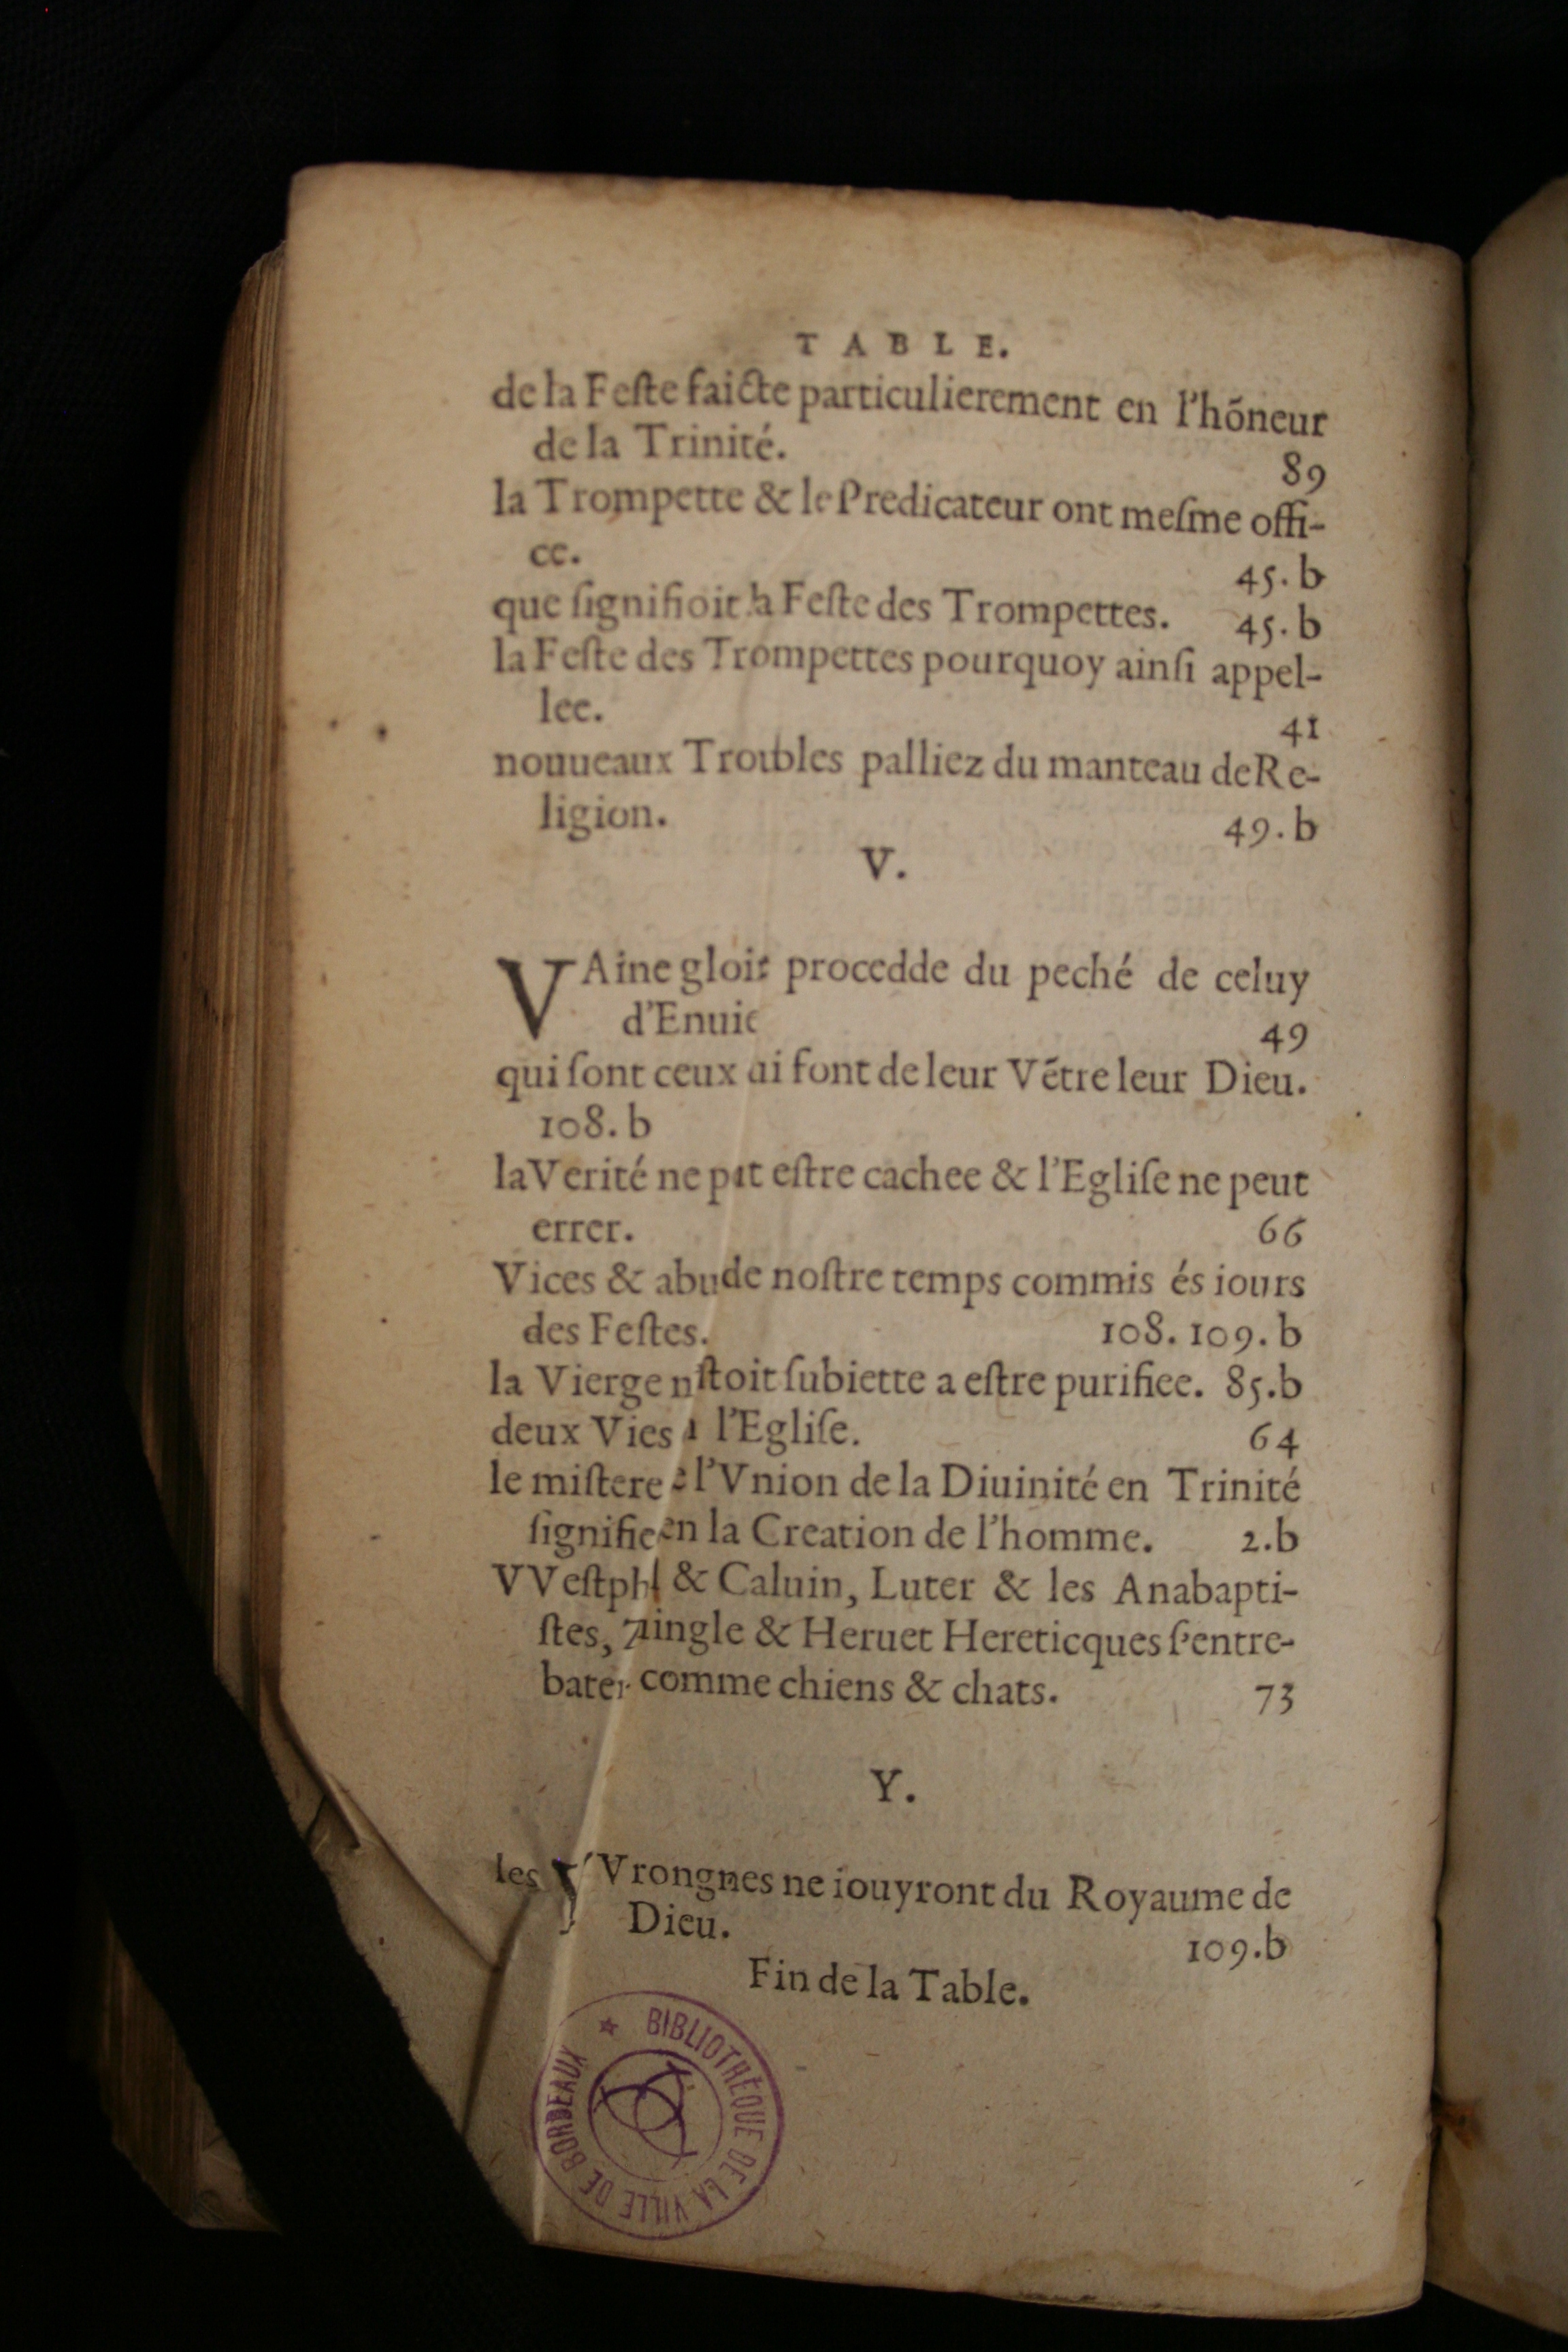 TABLE.
de la Feſte faicte particulierement en l'hõneur
de la Trinité. 89
la Trompette & le Predicateur ont meſme offi-
ce. 45. b
que ſignifioit la Feſte des Trompettes. 45. b
la Feſte des Trompettes pourquoy ainſi appel-
lee. 41
nouueaux Troubles palliez du manteau de Re-
ligion. 49. b
V.
VAine procedde du peché de celuy
d'Enuie 49
qui ſont ceux font de leur Vẽtre leur Dieu.
108. b
la Verité ne eſtre cachee & l'Egliſe ne peut
errer. 66
Vices & de noſtre temps commis és iours
des Feſtes. 108. 109. b
la Vierge ſubiette a eſtre purifiee. 85.b
deux Vies l'Egliſe. 64
le miſtere l'Vnion de la Diuinité en Trinité
ſignifie en la Creation de l'homme. 2.b
& Caluin, Luter & les Anabapti-
ſtes, & Heruet Hereticques ſ'entre-
comme chiens & chats. 73
Y.
les YVrongnes ne iouyront du Royaume de
Dieu. 109.b
Fin de la Table.
BIBLIOTHÈQUE DE LA VILLE DE BORDEAUX